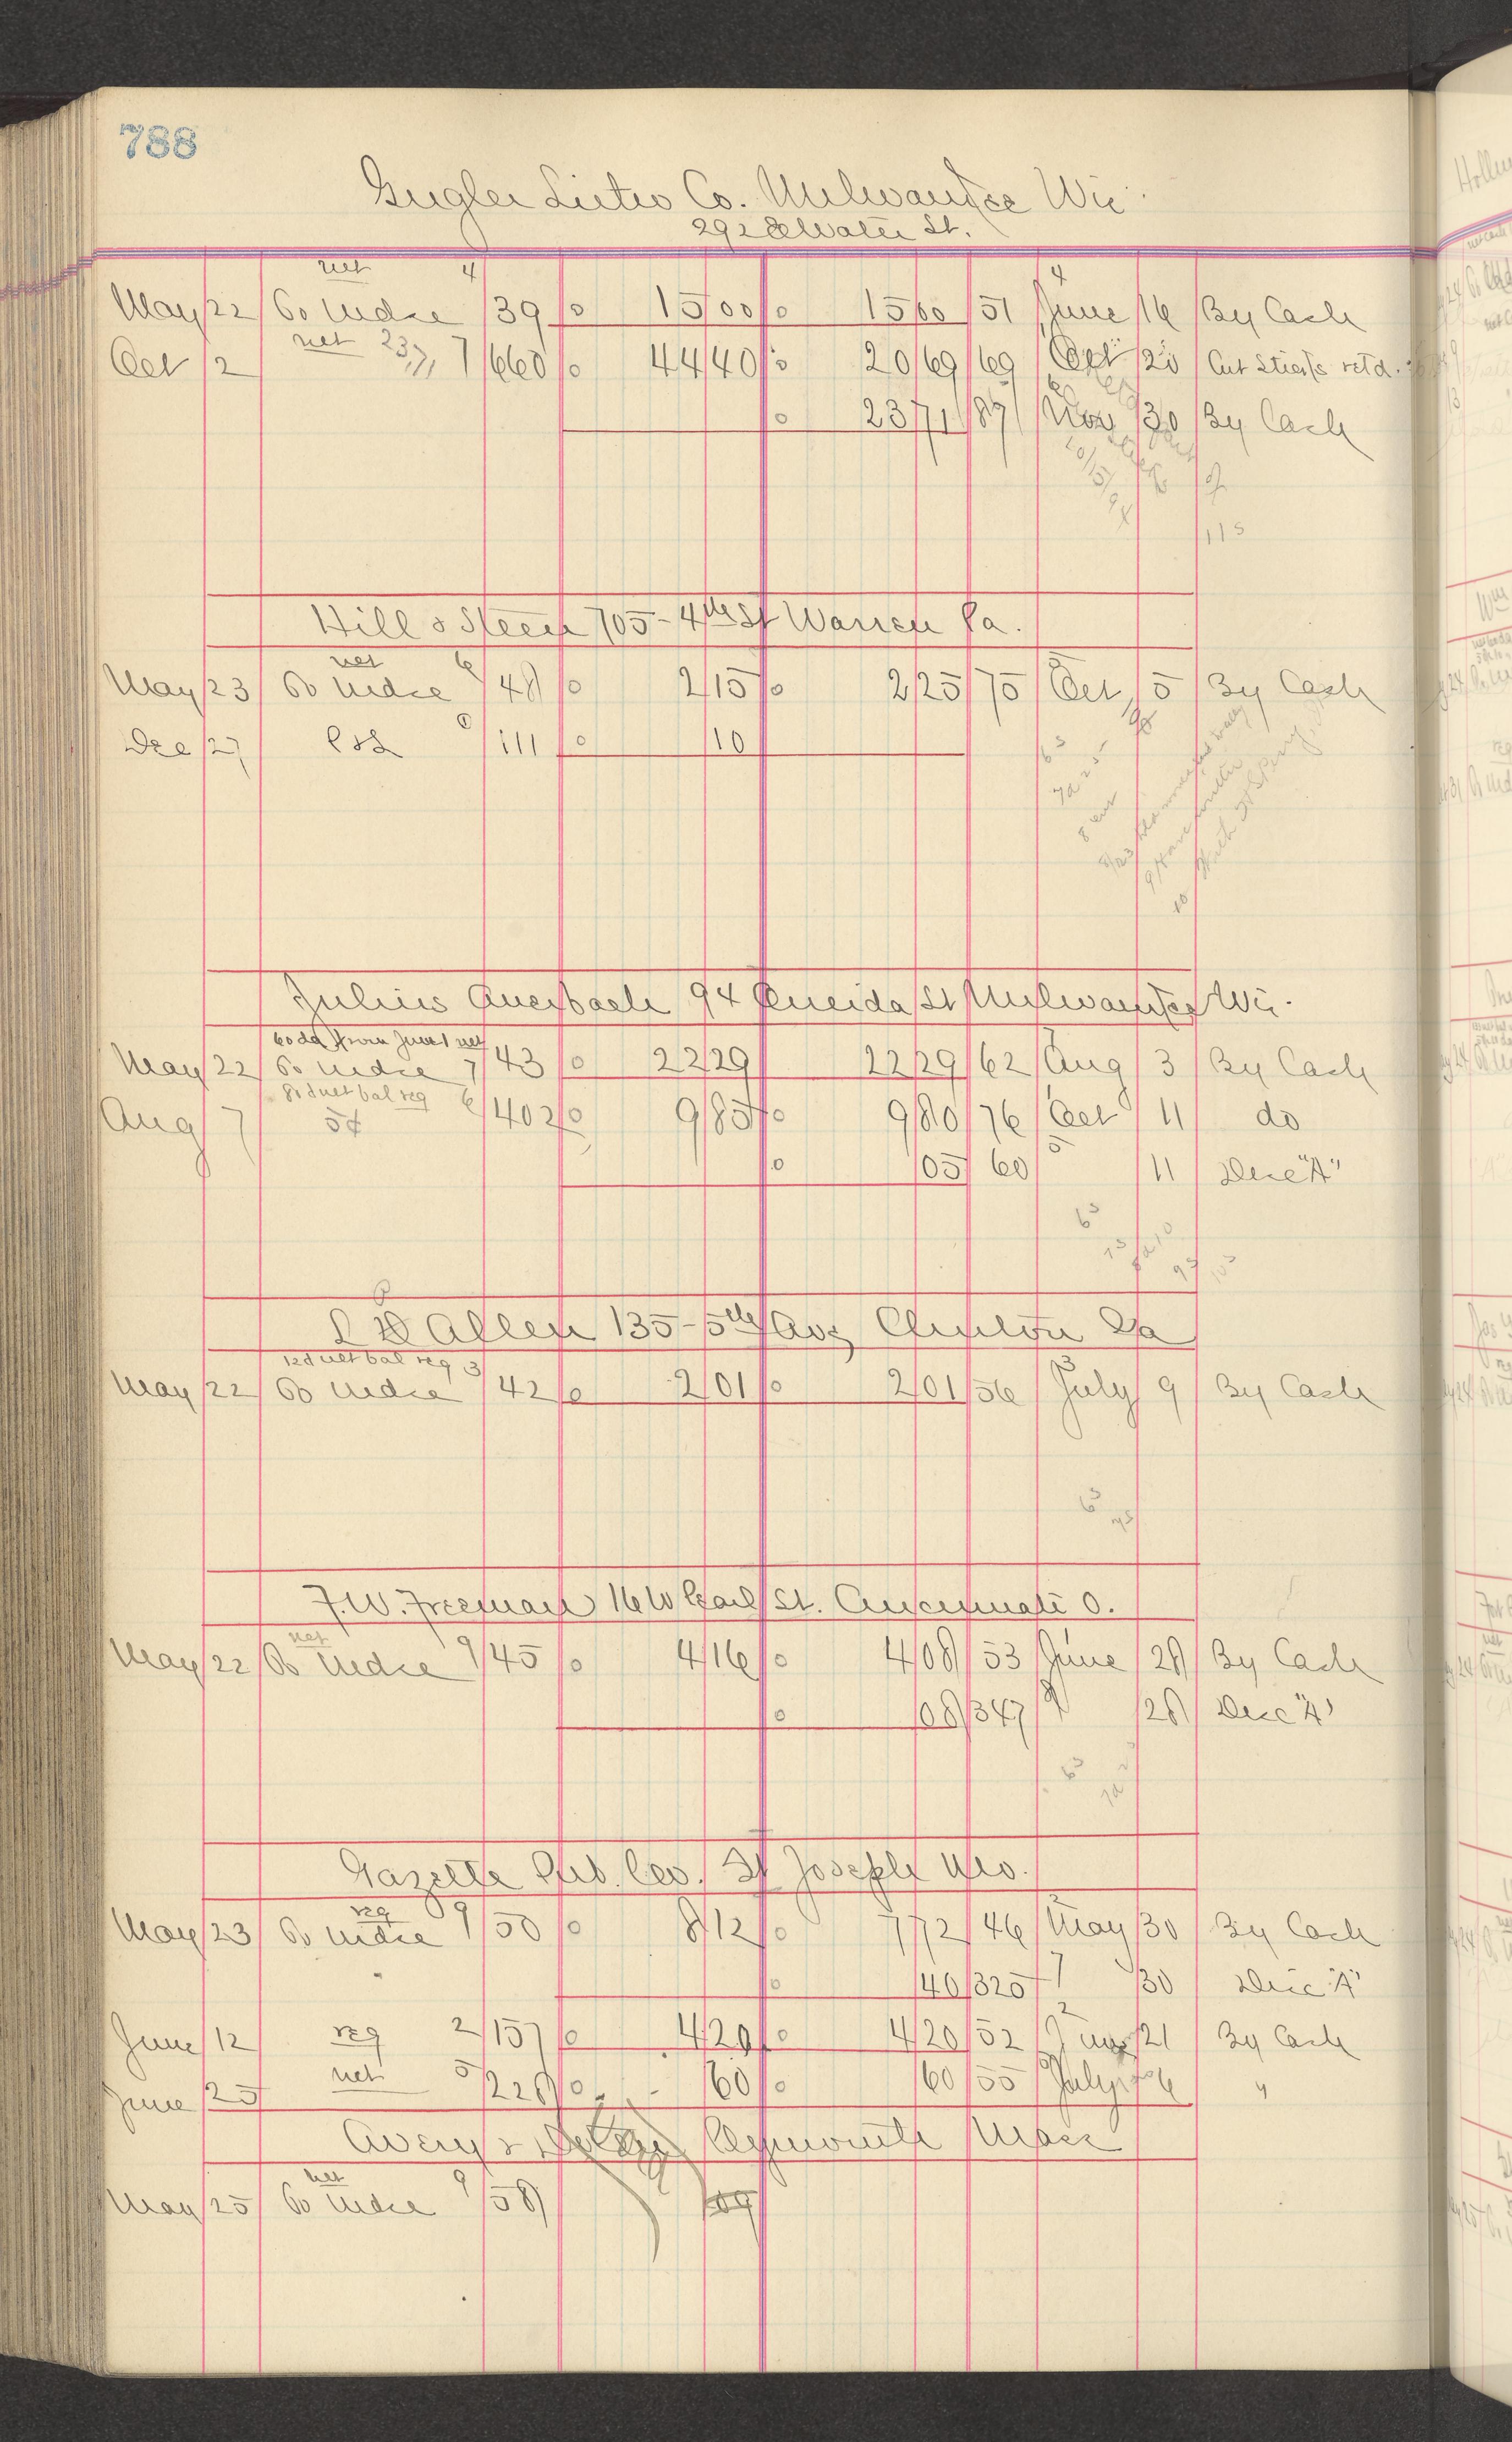 788
Gugler Litho Co. Milwaukee Wis.
292 E Water St.
net 4 4
May 22 To Mdse 39 15 00 15 00 51 June 16 By Cash
Oct 2 net 23 7 660 44 40 20 69 69 Oct 20 Cut Sticks retd.
23 71 87 Nov 30 By Cash
115
Hill & Steen 705-4th St Warren Pa.
net 6
May 23 To Mdse 48 2 15 2 25 75 Oct 5 By Cash
Dec 27 P&L 111 10
Julius Auerbach 94 Oneida St Milwaukee Wis.
60 da from June 1 net
May 22 To Mdse 7 43 22 29 22 29 62 Aug 3 By Cash
8 1d net bal reg 6
Aug 7 5¢ 402 9 85 9 80 76 Oct 11 do
05 60 5 11 Disc "A"
L D Allen 135-5th Ave Clinton Ia
1% d net bal reg 3 3
May 22 To Mdse 42 2 01 2 01 56 July 9 By Cash
F.W. Freeman 16 W Pearl St. Cincinnati O.
net
May 22 To Mdse 9 45 4 16 4 08 53 June 28 By Cash
08 347 28 Disc "A"
Gazette Pub. Co. St Joseph Mo.
reg 9
May 23 To Mdse 50 8 12 7 72 46 May 30 By Cash
40 325 7 30 Disc "A"
June 12 reg 2 157 4 20 4 20 52 June 21 By Cash
June 25 net 5 228 60 60 55 July 6 "
Avery & Plymouth Mass
net 9
May 25 To Mdse 58 09